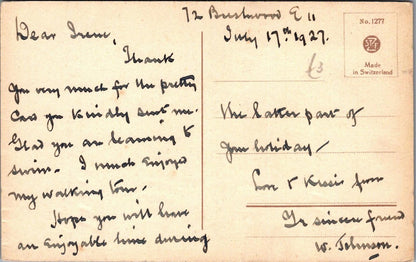 72 Brentwood E 11
July 17th 1927.
No. 1277
Made
in Switzerland
£3
Dear Irene,
Thank
you very much for the pretty
Card you kindly sent me.
Glad you are learning to
swim. I much enjoyed
my walking tour.
Hope you will have
an enjoyable time during
the latter part of
your holiday.
Love & Kisses from
Yr sincere friend
W. Johnson.